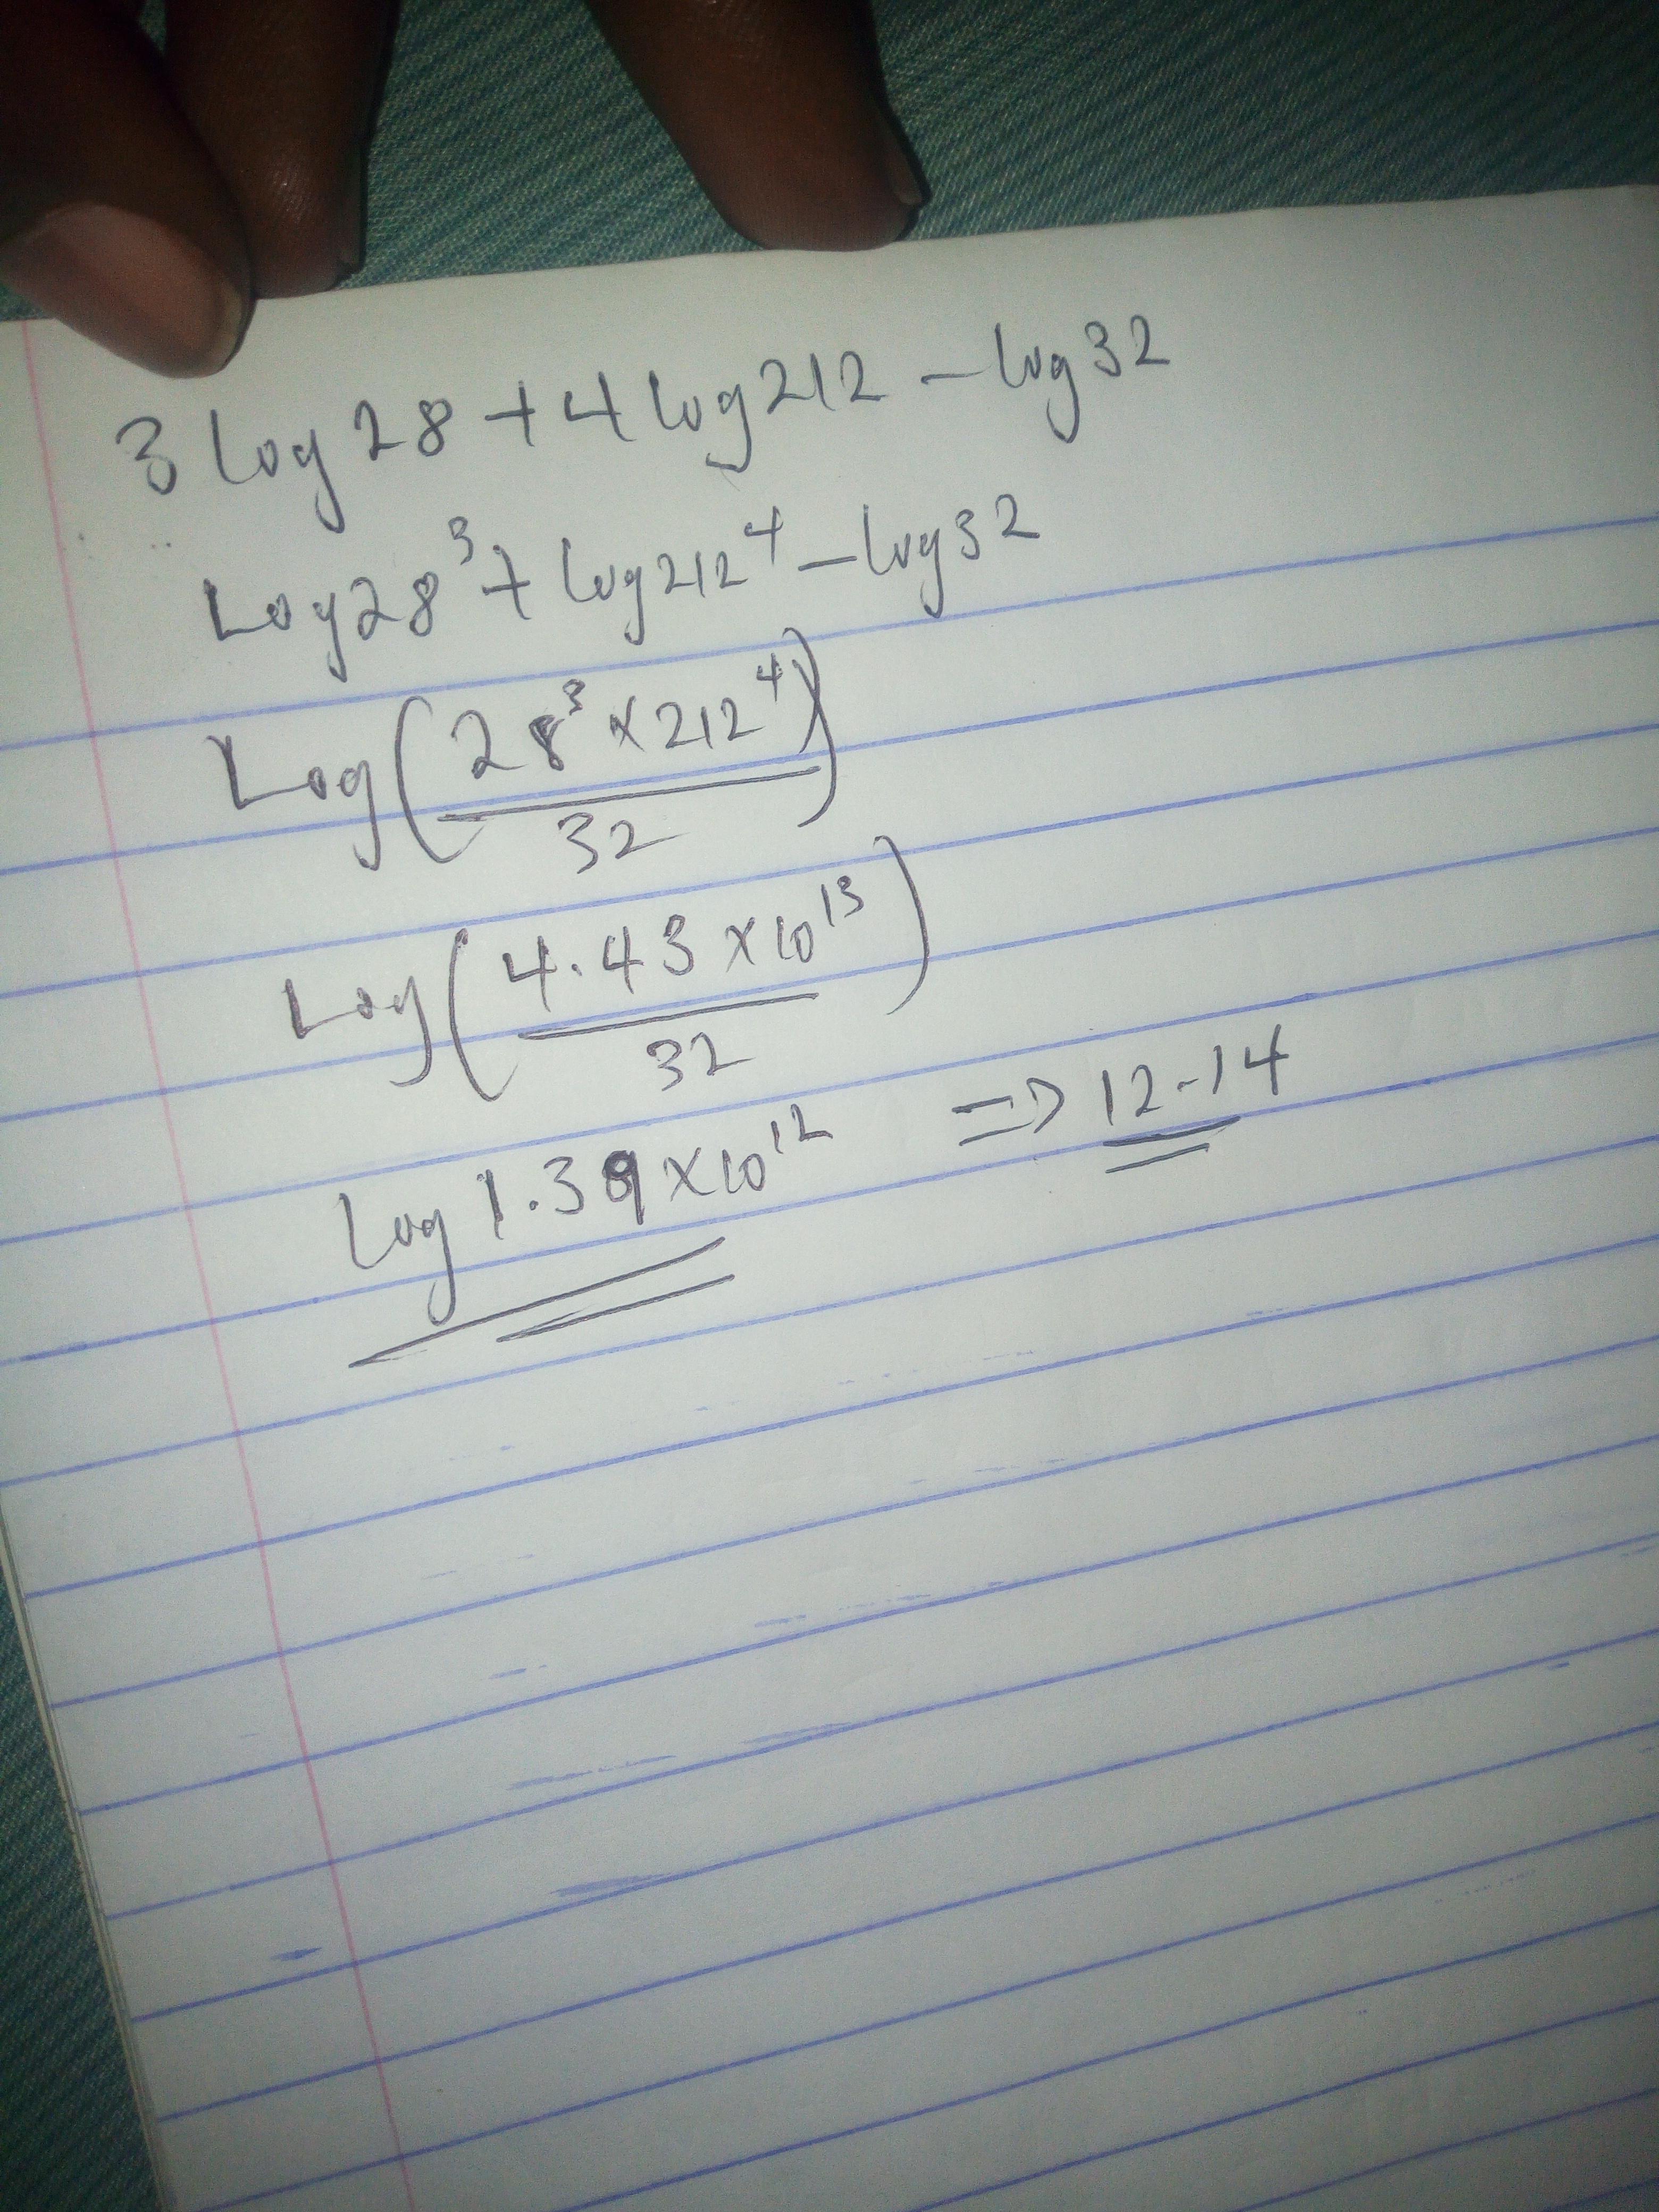 3 log 28 + 4 log 212 - log 32
Log 28³ + log 212⁴ - log 32
Log (28³ × 212⁴) / 32)
Log (4.43 × 10¹³ / 32)
log 1.39 × 10¹² => 12.14